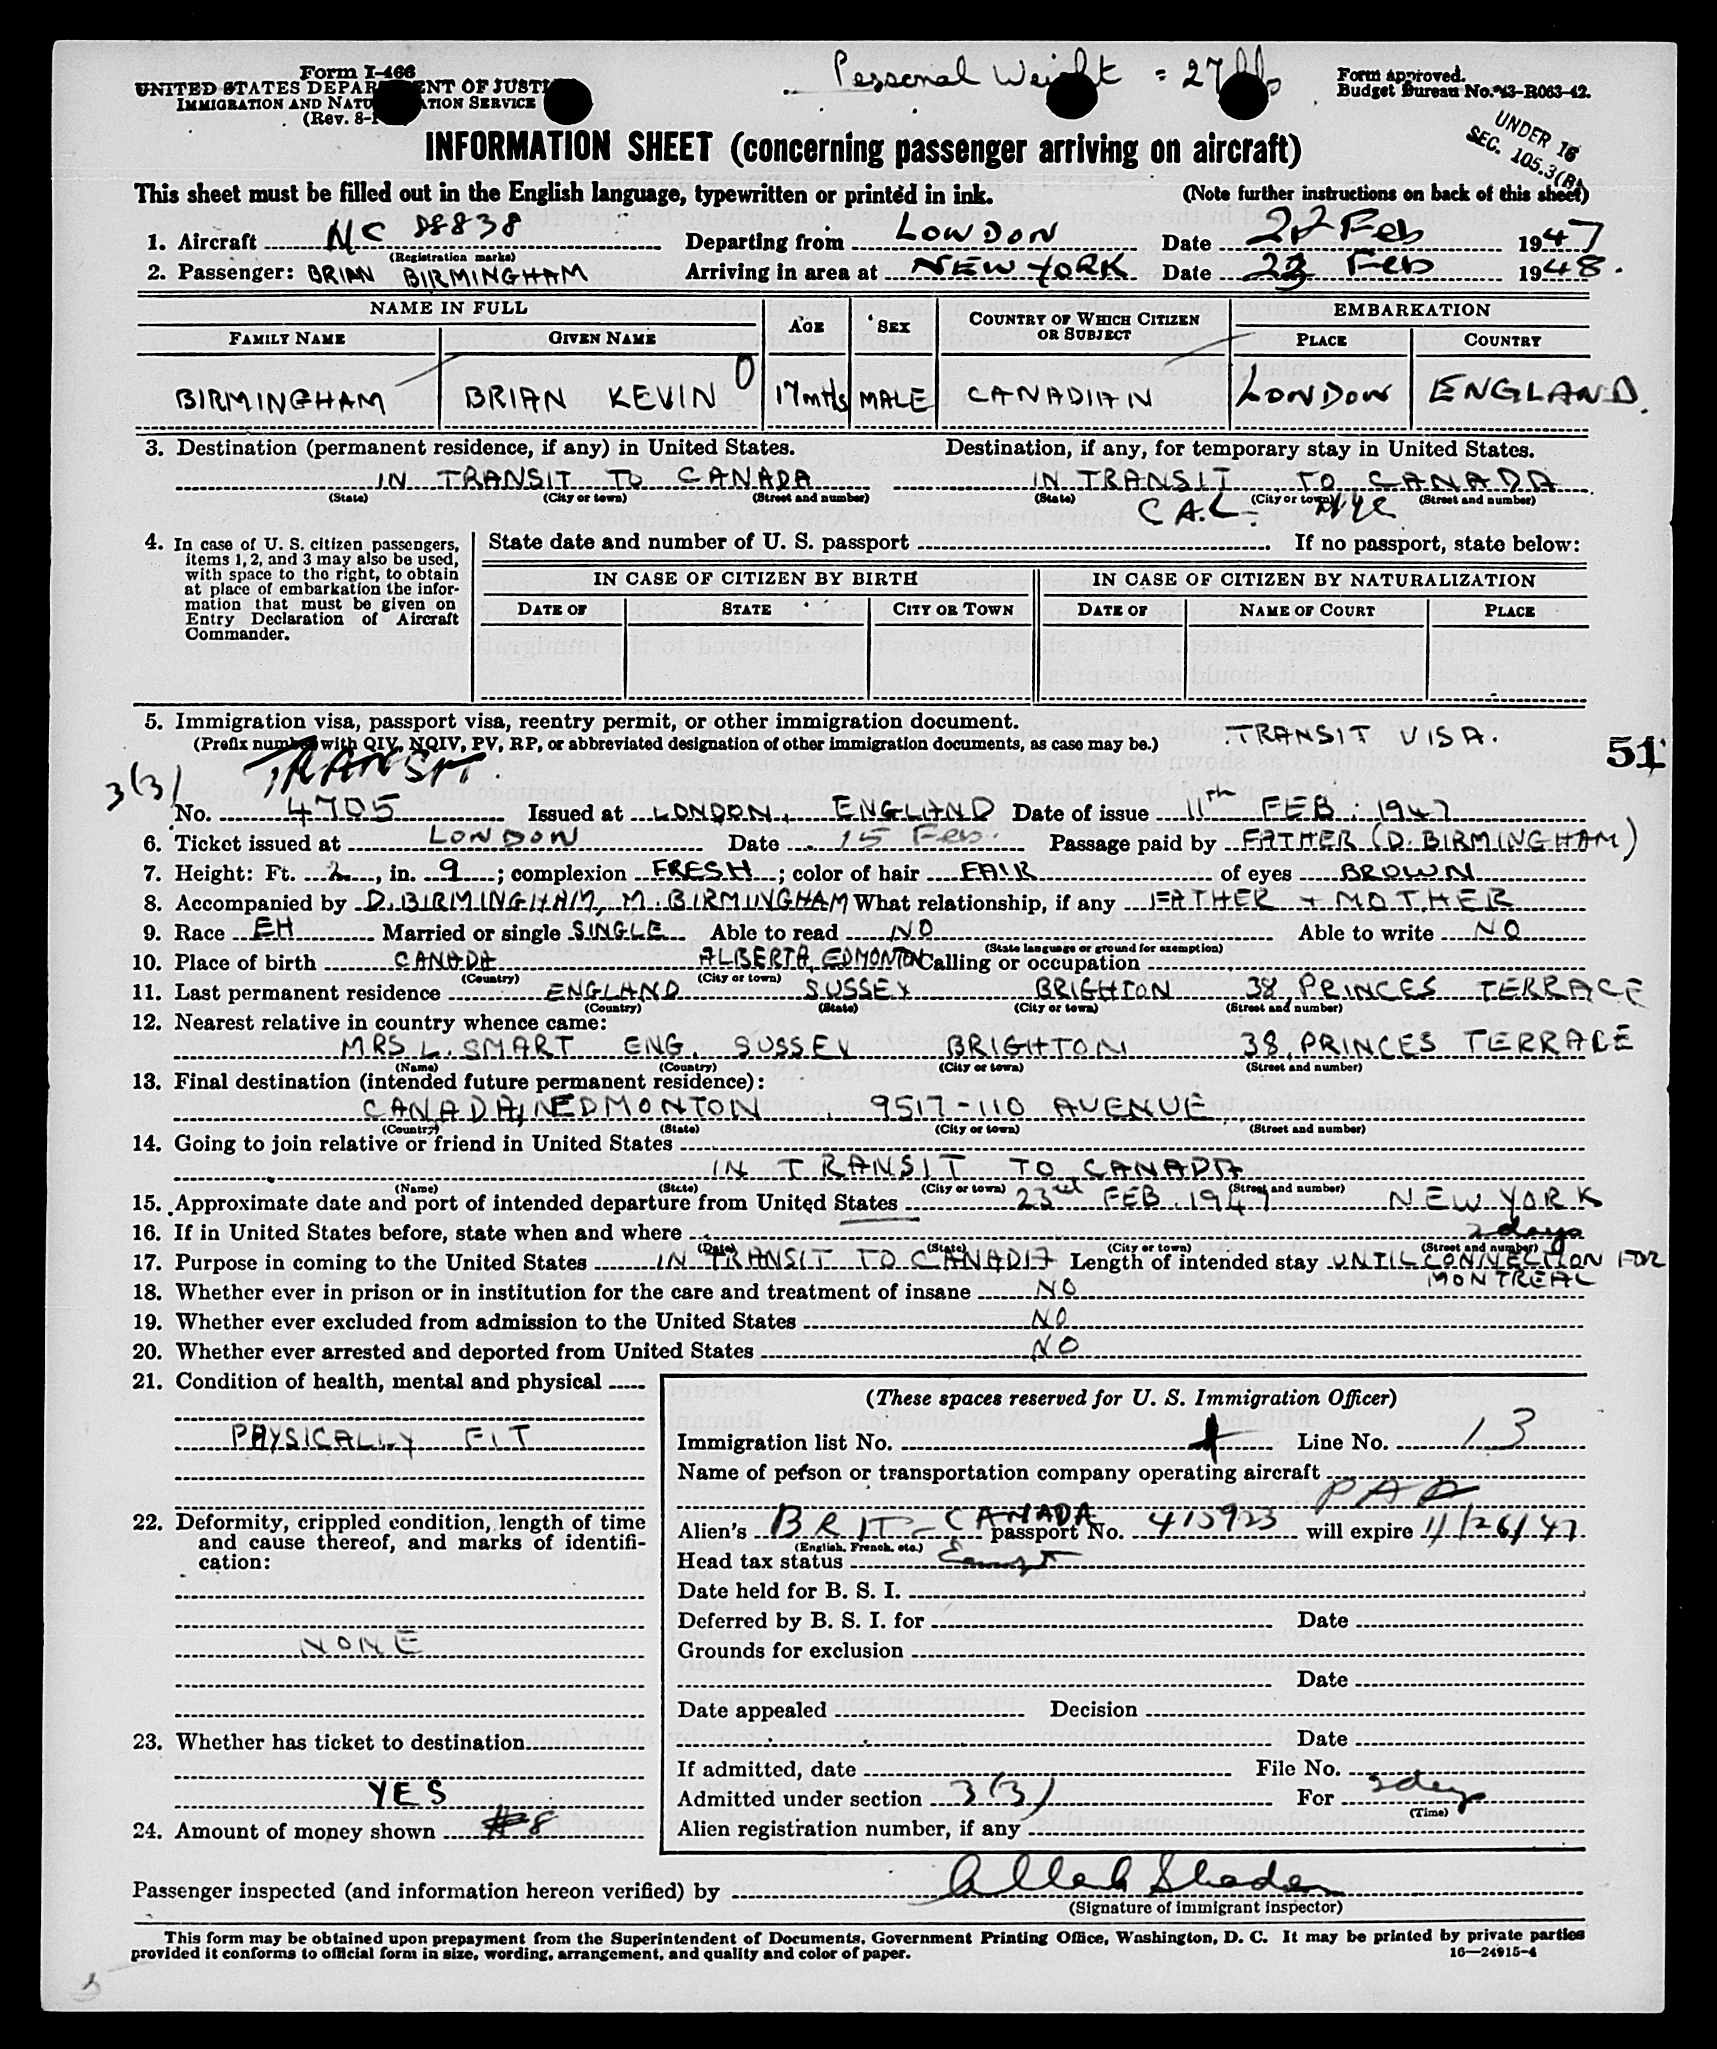 Personal Weight = 27 lbs
Form I-466
UNITED STATES DEPARTMENT OF JUSTICE
IMMIGRATION AND NATURALIZATION SERVICE
(Rev. 8-1
Form approved.
Budget Bureau No. 43-R063-42.
UNDER 16
SEC. 105.3(B)
INFORMATION SHEET (concerning passenger arriving on aircraft)
This sheet must be filled out in the English language, typewritten or printed in ink. (Note further instructions on back of this sheet)
1. Aircraft NC 88838 Departing from LONDON Date 22 Feb 1947
(Registration marks)
2. Passenger: BRIAN BIRMINGHAM Arriving in area at NEW YORK Date 23 Feb 1948.
NAME IN FULL AGE SEX COUNTRY OF WHICH CITIZEN OR SUBJECT EMBARKATION
FAMILY NAME GIVEN NAME PLACE COUNTRY
BIRMINGHAM BRIAN KEVIN 0 17 mths MALE CANADIAN LONDON ENGLAND.
3. Destination (permanent residence, if any) in United States. Destination, if any, for temporary stay in United States.
IN TRANSIT TO CANADA IN TRANSIT TO CANADA
(State) (City or town) (Street and number) (State) (City or town) (Street and number)
C A.L. NYC
4. In case of U. S. citizen passengers, items 1, 2, and 3 may also be used, with space to the right, to obtain at place of embarkation the information that must be given on Entry Declaration of Aircraft Commander.
State date and number of U. S. passport If no passport, state below:
IN CASE OF CITIZEN BY BIRTH IN CASE OF CITIZEN BY NATURALIZATION
DATE OF STATE CITY OR TOWN DATE OF NAME OF COURT PLACE
5. Immigration visa, passport visa, reentry permit, or other immigration document.
(Prefix number with QIV, NQIV, PV, RP, or abbreviated designation of other immigration documents, as case may be.) TRANSIT VISA.
51
3(3) TRANSIT
No. 4705 Issued at LONDON, ENGLAND Date of issue 11th FEB. 1947
6. Ticket issued at LONDON Date 15 Feb. Passage paid by FATHER (D. BIRMINGHAM)
7. Height: Ft. 2, in. 9; complexion FRESH; color of hair FAIR of eyes BROWN
8. Accompanied by D. BIRMINGHAM, M. BIRMINGHAM What relationship, if any FATHER + MOTHER
9. Race EH Married or single SINGLE Able to read NO Able to write NO
(State language or ground for exemption)
10. Place of birth CANADA ALBERTA, EDMONTON Calling or occupation
(Country) (City or town)
11. Last permanent residence ENGLAND SUSSEX BRIGHTON 38 PRINCES TERRACE
(Country) (State) (City or town) (Street and number)
12. Nearest relative in country whence came:
MRS L. SMART ENG. SUSSEX BRIGHTON 38, PRINCES TERRACE
(Name) (Country) (City or town) (Street and number)
13. Final destination (intended future permanent residence):
CANADA, EDMONTON, 9517-110 AVENUE
(Country) (State) (City or town) (Street and number)
14. Going to join relative or friend in United States
IN TRANSIT TO CANADA
(Name) (State) (City or town) (Street and number)
15. Approximate date and port of intended departure from United States 23rd FEB. 1947 NEW YORK
16. If in United States before, state when and where
(Date) (State) (City or town) (Street and number)
2 days
17. Purpose in coming to the United States IN TRANSIT TO CANADA Length of intended stay UNTIL CONNECTION FOR
MONTREAL
18. Whether ever in prison or in institution for the care and treatment of insane NO
19. Whether ever excluded from admission to the United States NO
20. Whether ever arrested and deported from United States NO
21. Condition of health, mental and physical
PHYSICALLY FIT
22. Deformity, crippled condition, length of time and cause thereof, and marks of identification:
NONE
23. Whether has ticket to destination
YES
24. Amount of money shown #8
(These spaces reserved for U. S. Immigration Officer)
Immigration list No. Line No. 13
Name of person or transportation company operating aircraft
PAA
Alien's BRIT-CANADA passport No. 415923 will expire 11/26/47
(English, French, etc.)
Head tax status Exempt
Date held for B. S. I.
Deferred by B. S. I. for Date
Grounds for exclusion
Date
Date appealed Decision
Date
If admitted, date File No.
Admitted under section 3(3) For 2 days
(Time)
Alien registration number, if any
Passenger inspected (and information hereon verified) by
(Signature of immigrant inspector)
This form may be obtained upon prepayment from the Superintendent of Documents, Government Printing Office, Washington, D. C. It may be printed by private parties
provided it conforms to official form in size, wording, arrangement, and quality and color of paper. 16—24915-4